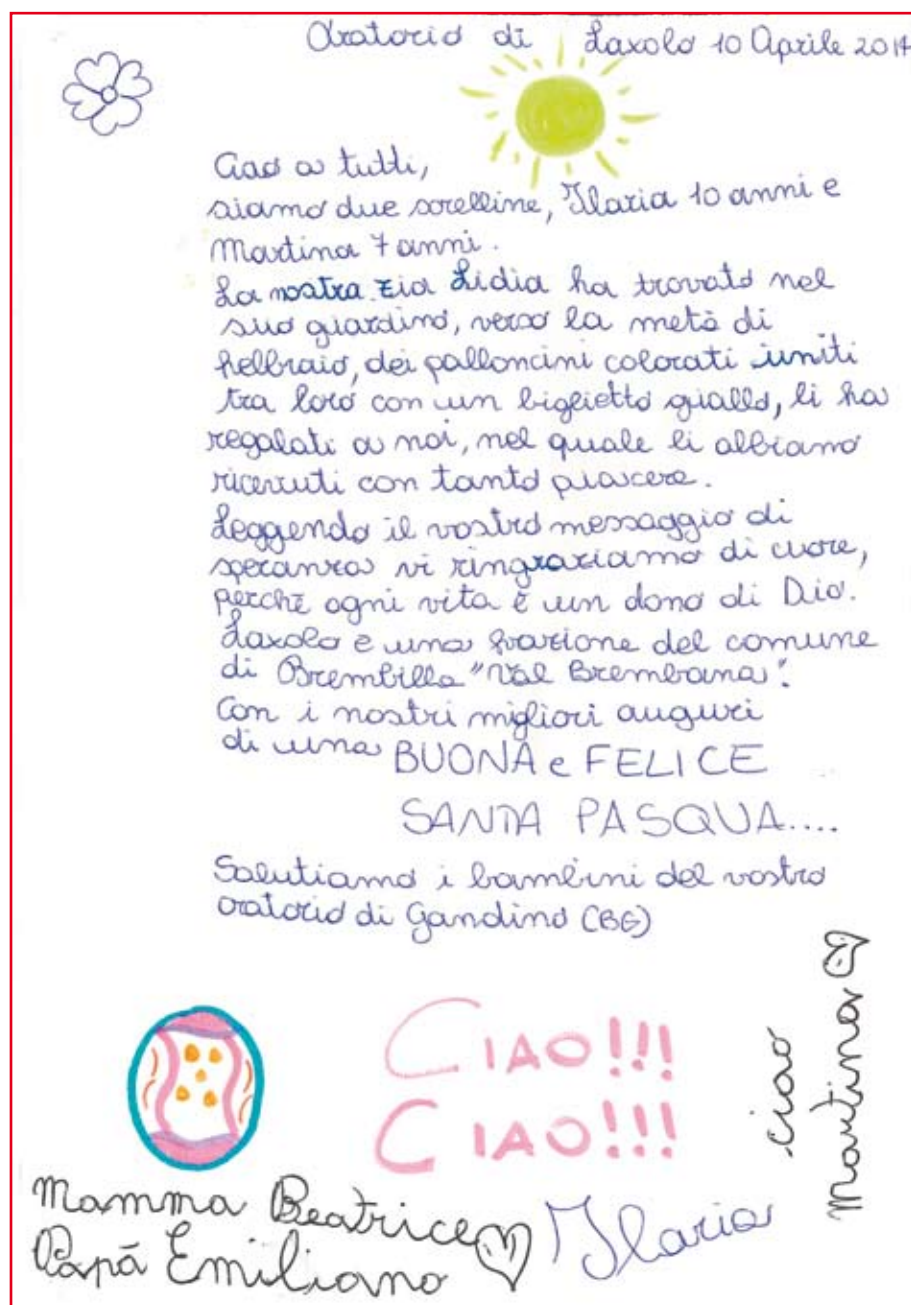 Oratorio di Laxolo 10 Aprile 2014
Ciao a tutti,
siamo due sorelline, Ilaria 10 anni e
Martina 7 anni.
La nostra zia Lidia ha trovato nel
suo giardino, verso la metà di
febbraio, dei palloncini colorati uniti
tra loro con un biglietto giallo, li ha
regalati a noi, nel quale li abbiamo
ricevuti con tanto piacere.
Leggendo il vostro messaggio di
speranza vi ringraziamo di cuore,
perchè ogni vita è un dono di Dio.
Laxolo è una frazione del comune
di Brembilla "Val Brembana".
Con i nostri migliori auguri
di una BUONA e FELICE
SANTA PASQUA....
Salutiamo i bambini del vostro
oratorio di Gandino (BG)
CIAO!!!
CIAO!!!
ciao
Martina
Mamma Beatrice
Papà Emiliano
Ilaria